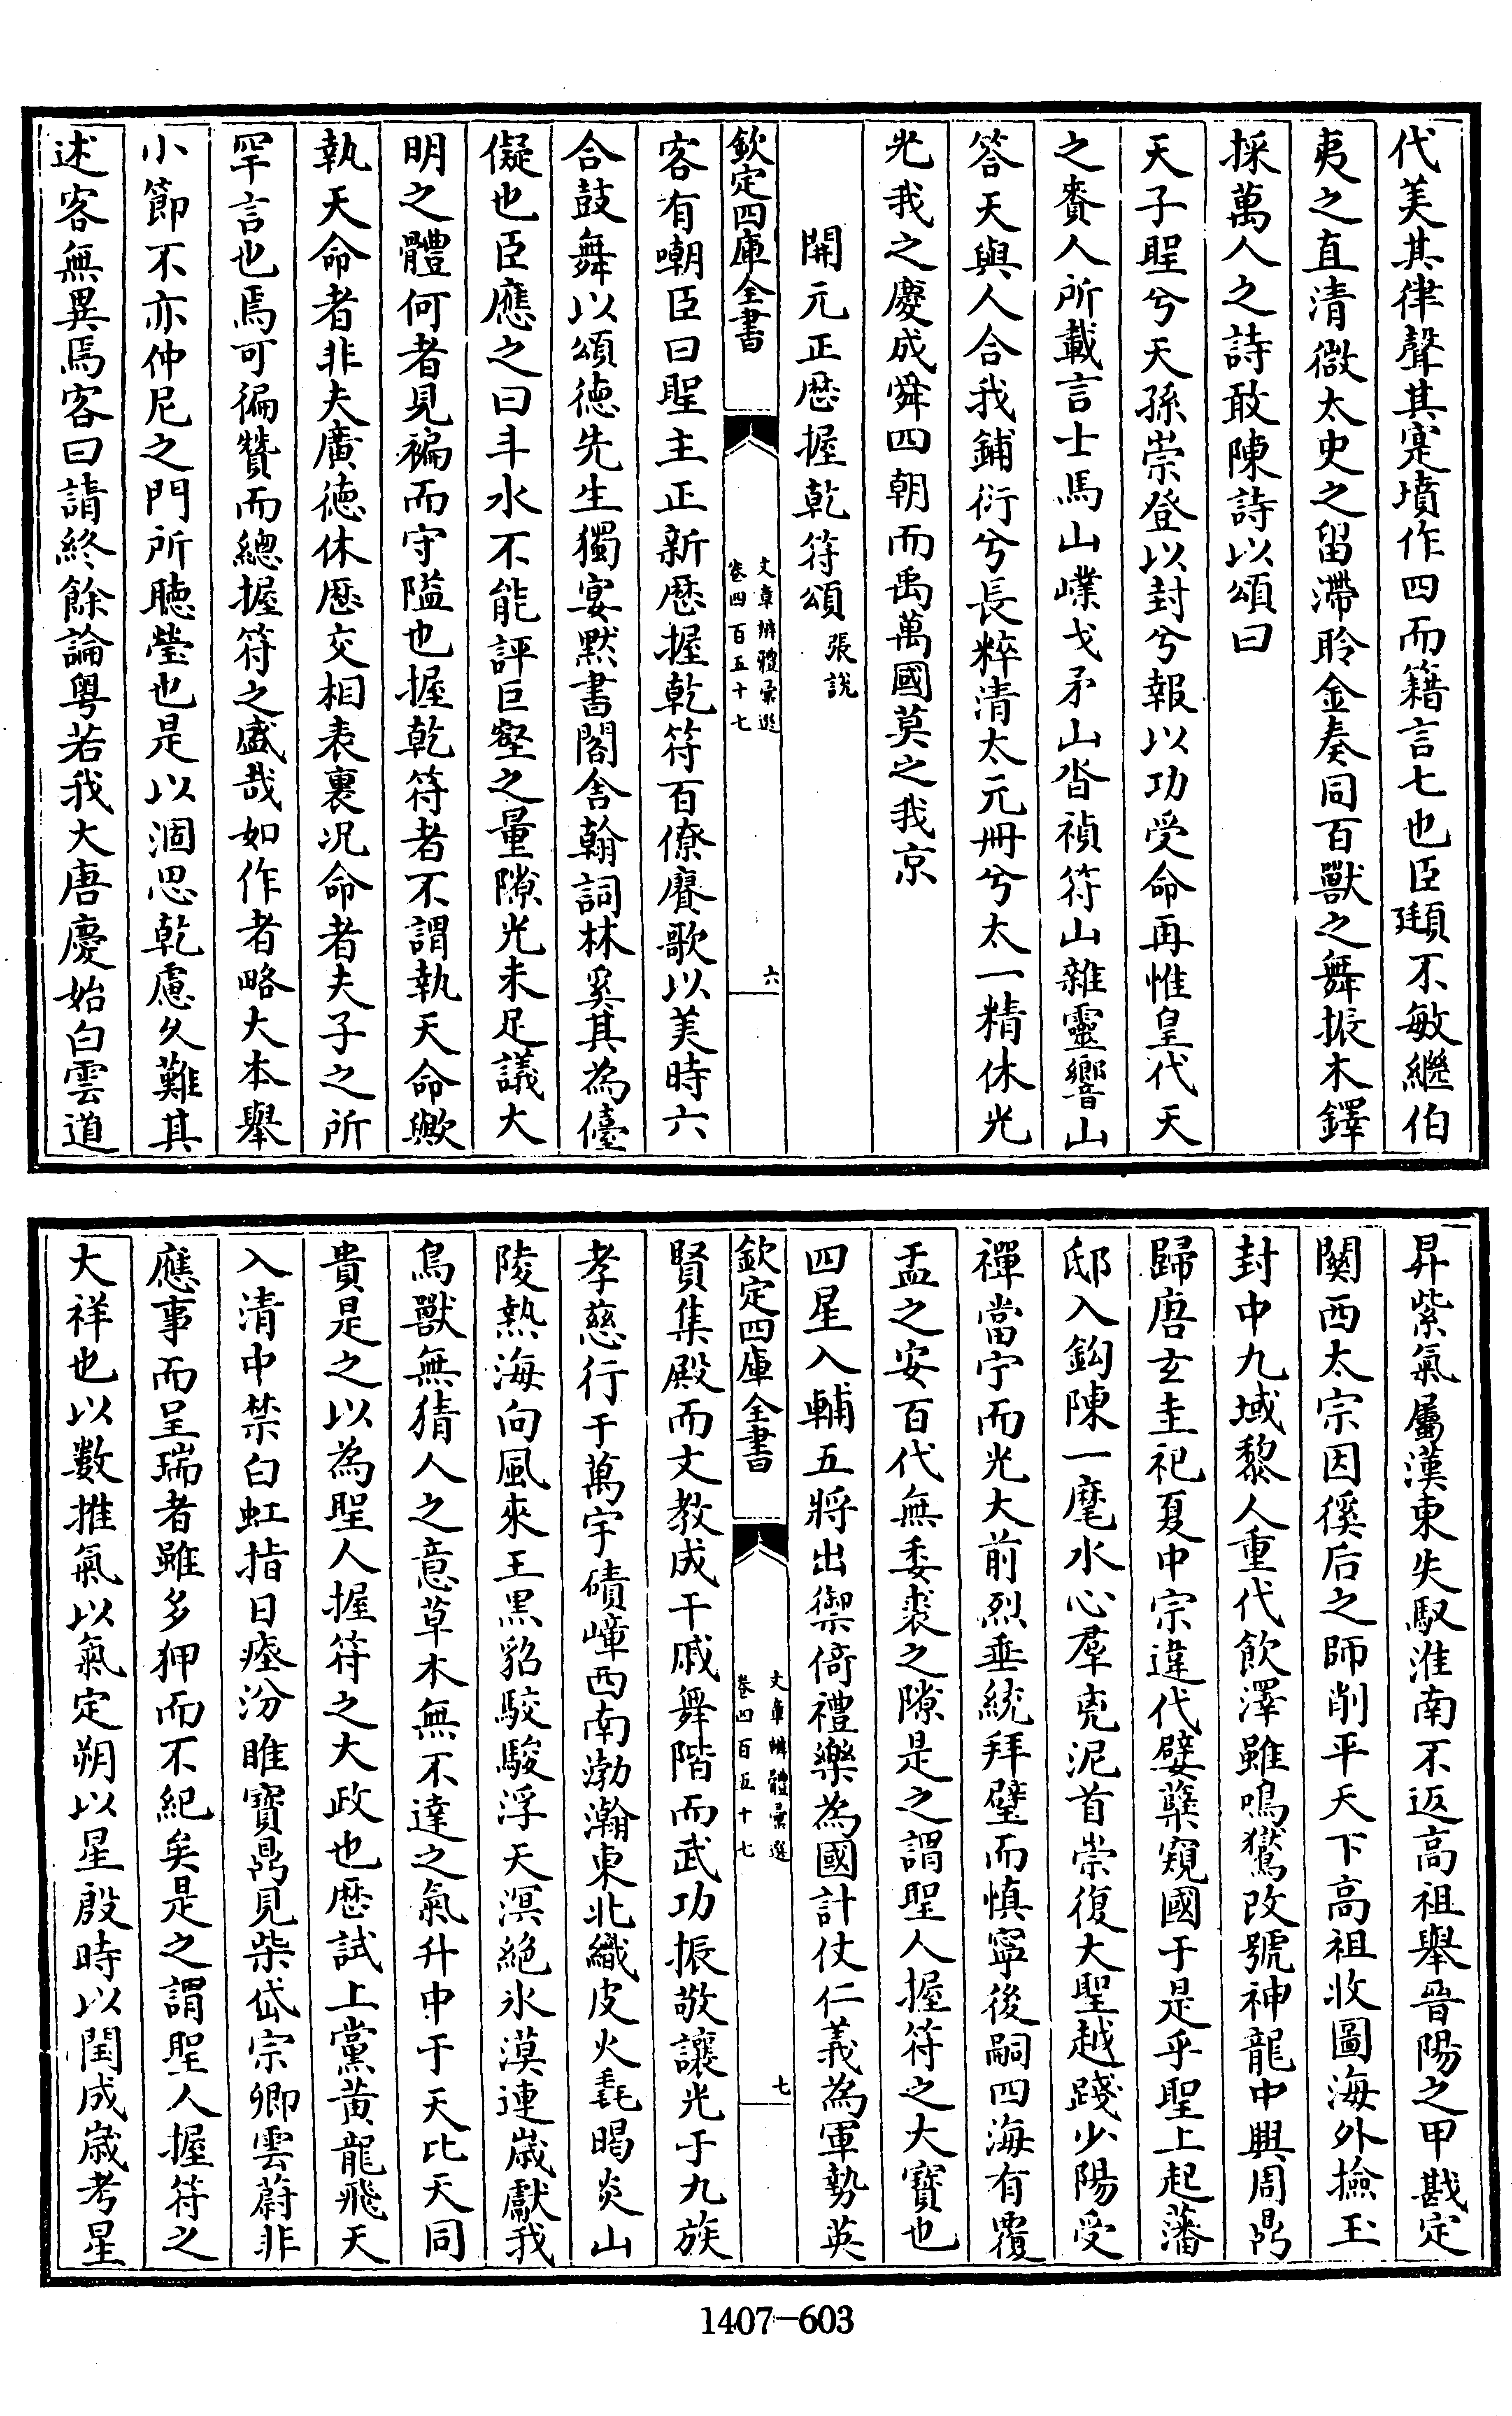 代美其律聲其寔墳作四而籍言七也臣頲不敏繼伯
夷之直清微太史之留滯聆金奏同百獸之舞振木鐸
採萬人之詩敢陳詩以頌曰
天子聖兮天孫崇登以封兮報以功受命再惟皇代天
之賚人所載言士馬山嶫戈矛山沓禎符山雜靈響山
答天與人合我鋪衍兮長粹清太元冊兮太一精休光
光我之慶成舜四朝而禹萬國莫之我京
開元正厯握乾符頌 張說
欽定四庫全書 文章辨體彙選 卷四百五十七 六
客有嘲臣曰聖主正新厯握乾符百僚賡歌以美時六
合鼓舞以頌徳先生獨宴黙書閣舍翰詞林奚其為儓
儗也臣應之曰斗水不能評巨壑之量隙光未足議大
明之體何者見褊而守隘也握乾符者不謂執天命歟
執天命者非夫廣徳休厯交相表裏況命者夫子之所
罕言也焉可徧贊而總握符之盛哉如作者略大本舉
小節不亦仲尼之門所聴瑩也是以涸思乾慮久難其
述客無異焉客曰請終餘論粤若我大唐慶始白雲道
昇紫氣屬漢東失馭淮南不返高祖舉晉陽之甲戡定
關西太宗因徯后之師削平天下高祖收圖海外撿玉
封中九域黎人重代飲澤雖鳴鸑改號神龍中興周鼎
歸唐玄圭祀夏中宗違代嬖孽窺國于是乎聖上起藩
邸入鈎陳一麾水心羣兇泥首崇復大聖越踐少陽受
禪當宁而光大前烈垂統拜璧而慎寧後嗣四海有覆
盂之安百代無委裘之隙是之謂聖人握符之大寶也
四星入輔五將出禦倚禮樂為國計仗仁義為軍勢英
欽定四庫全書 文章辨體彙選 卷四百五十七 七
賢集殿而文教成干戚舞階而武功振敬讓光于九族
孝慈行于萬宇磧嶂西南渤瀚東北織皮火毳暍炎山
陵熱海向風來王黒貂駮駿浮天溟絶氷漠連歳獻我
鳥獸無猜人之意草木無不達之氣升中于天比天同
貴是之以為聖人握符之大政也厯試上黨黄龍飛天
入清中禁白虹指日瘞汾脽寳鼎見柴岱宗卿雲蔚非
應事而呈瑞者雖多狎而不紀矣是之謂聖人握符之
大祥也以數推氣以氣定朔以星殷時以閏成歳考星
1407-603